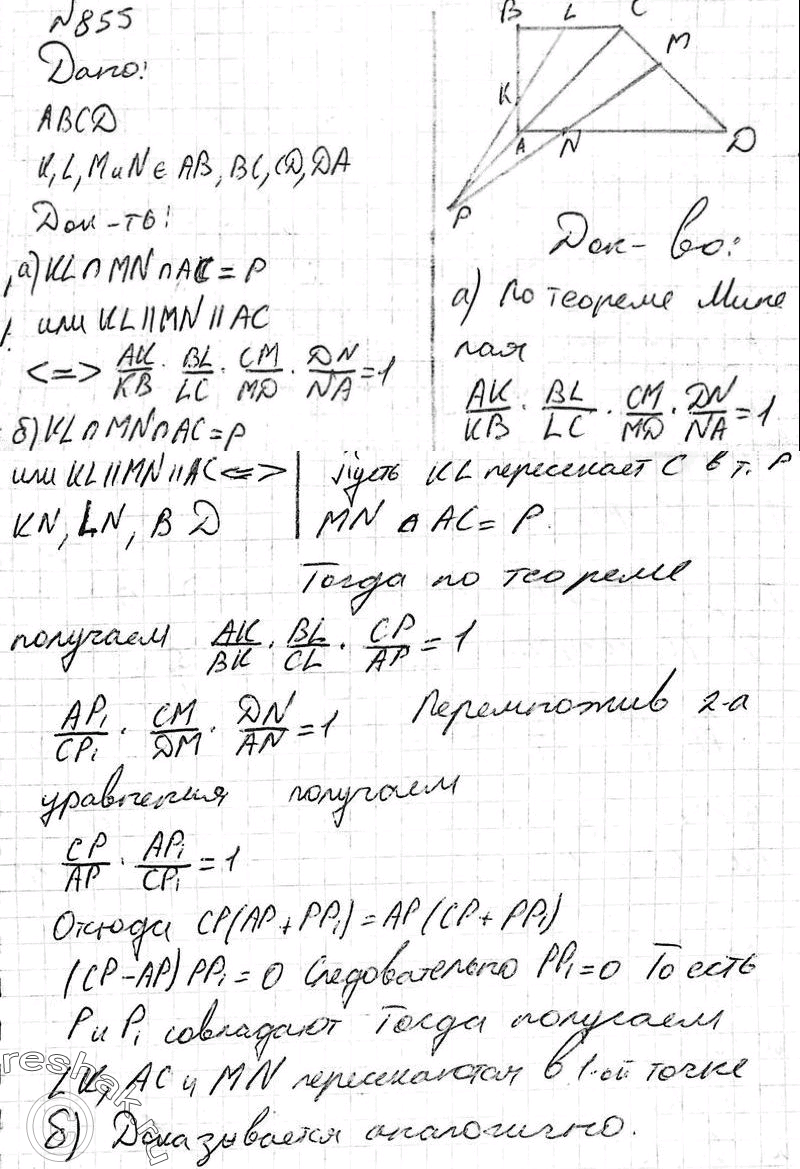 N855
Дано:
ABCD
K, L, M и N ∈ AB, BC, CD, DA
Док-ть:
а) KL ∩ MN ∩ AC = P
или KL || MN || AC
<=> AK/KB · BL/LC · CM/MD · DN/NA = 1
б) KL ∩ MN ∩ AC = P
или KL || MN || AC <=>
KN, LN, B D
B L C
M
K
A N D
P
Док-во:
а) По теореме Мине
лая
AK/KB · BL/LC · CM/MD · DN/NA = 1
Пусть KL пересекает C в т. P
MN ∩ AC = P.
Тогда по теореме
получаем AK/BK · BL/CL · CP/AP = 1
AP₁/CP₁ · CM/DM · DN/AN = 1 Перемножив 2-а
уравнения получаем
CP/AP · AP₁/CP₁ = 1
Отсюда CP(AP + PP₁) = AP(CP + PP₁)
(CP - AP) PP₁ = 0 Следовательно PP₁ = 0 То есть
P и P₁ совпадают Тогда получаем
LK, AC и MN пересекаются в 1-ой точке
б) Доказывается аналогично.
reshak.ru